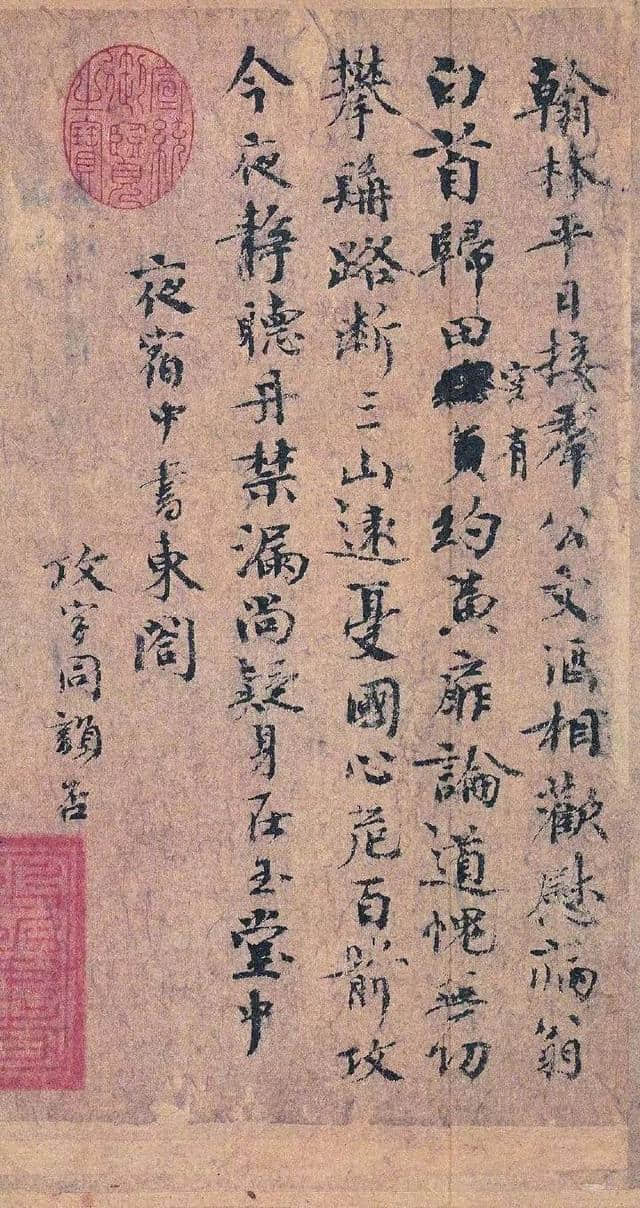 翰林平日接羣公文酒相歡慰病翁
空有
白首歸田負約黃扉論道愧無功
攀髯路斷三山遠憂國心危百箭攻
今夜靜聽丹禁漏尚疑身在玉堂中
夜宿中書東閤
攻字同韻否
宣統御覽之寶